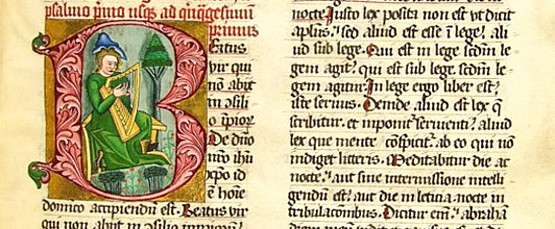 psalmo primo usq3 ad quīquagesimum
primus
Beatus
vir qui
nō abiit
in cōsili
o īpior
De dño
nrō ihū
xp̄o id
ē hoīe
domīco accipiendū est. Beatus vir
qui non abiit in cōsilio impiorū
nocte. Iusto lex posita non est ut dicit
apłus. sed aliud est esse ī lege. ali
ud sub lege. Qui est in lege scdm le
gem agit. qui est sub lege. scdm le
gem agitur. In lege ergo liber est.
iste servus. Deinde aliud est lex q̄
scribitur. et imponit̄ servienti. aliud
lex que mente cōspicit̄. ab eo qui nō
indiget litteris. Meditabitur die ac
nocte. aut sine intermissione intelli
gendū est. aut die in letitia nocte in
tribulacōnibus. Dicitur eīm. abrahā
diem meū vidit et